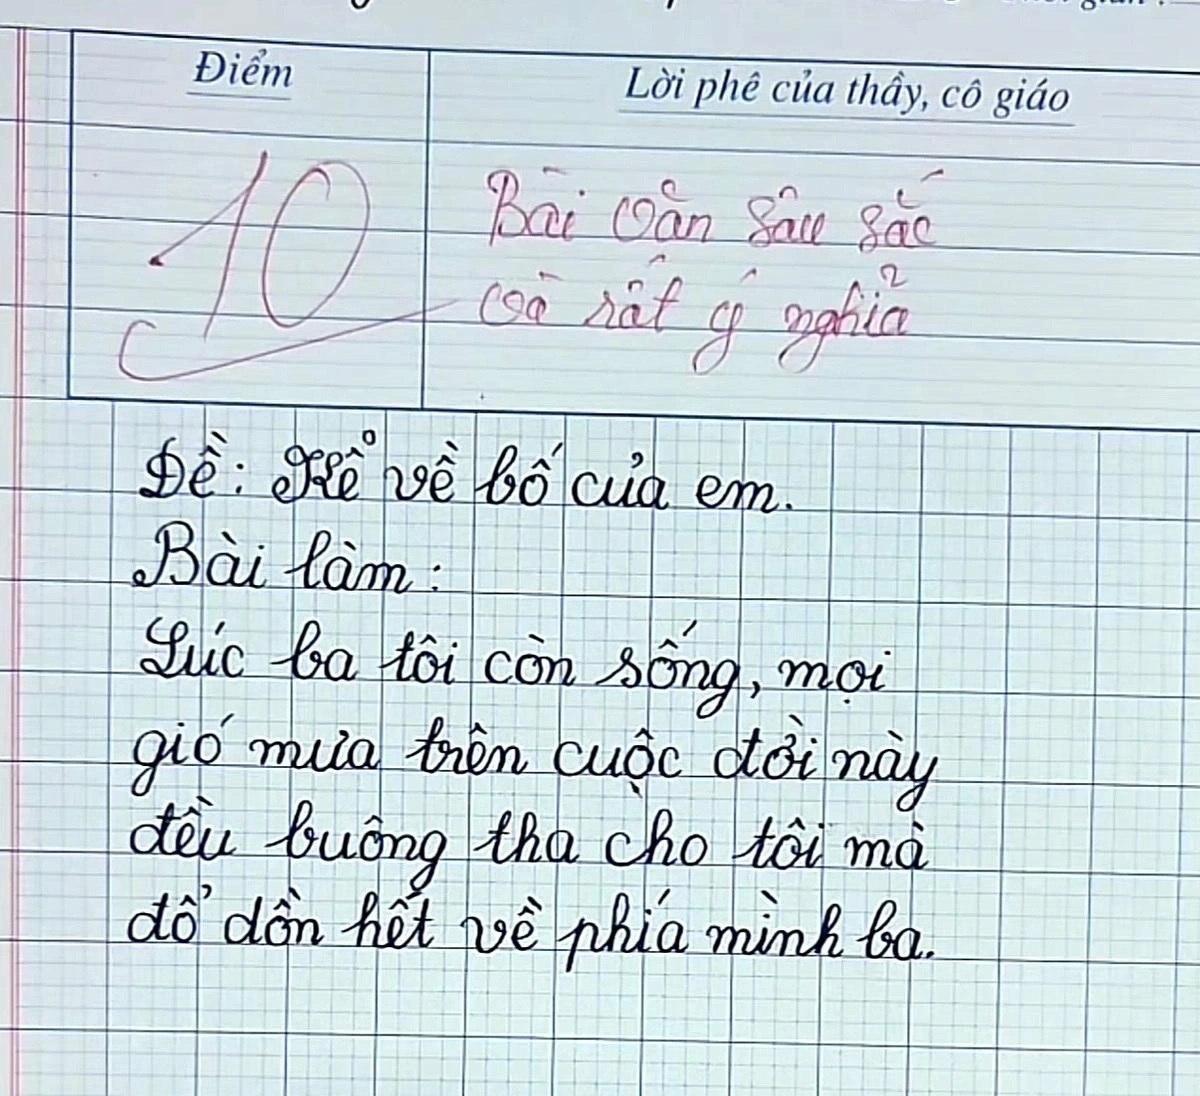 Điểm
Lời phê của thầy, cô giáo
10
Bài văn sâu sắc
và rất ý nghĩa
Đề: Kể về bố của em.
Bài làm:
Lúc ba tôi còn sống, mọi
gió mưa trên cuộc đời này
đều buông tha cho tôi mà
đổ dồn hết về phía mình ba.